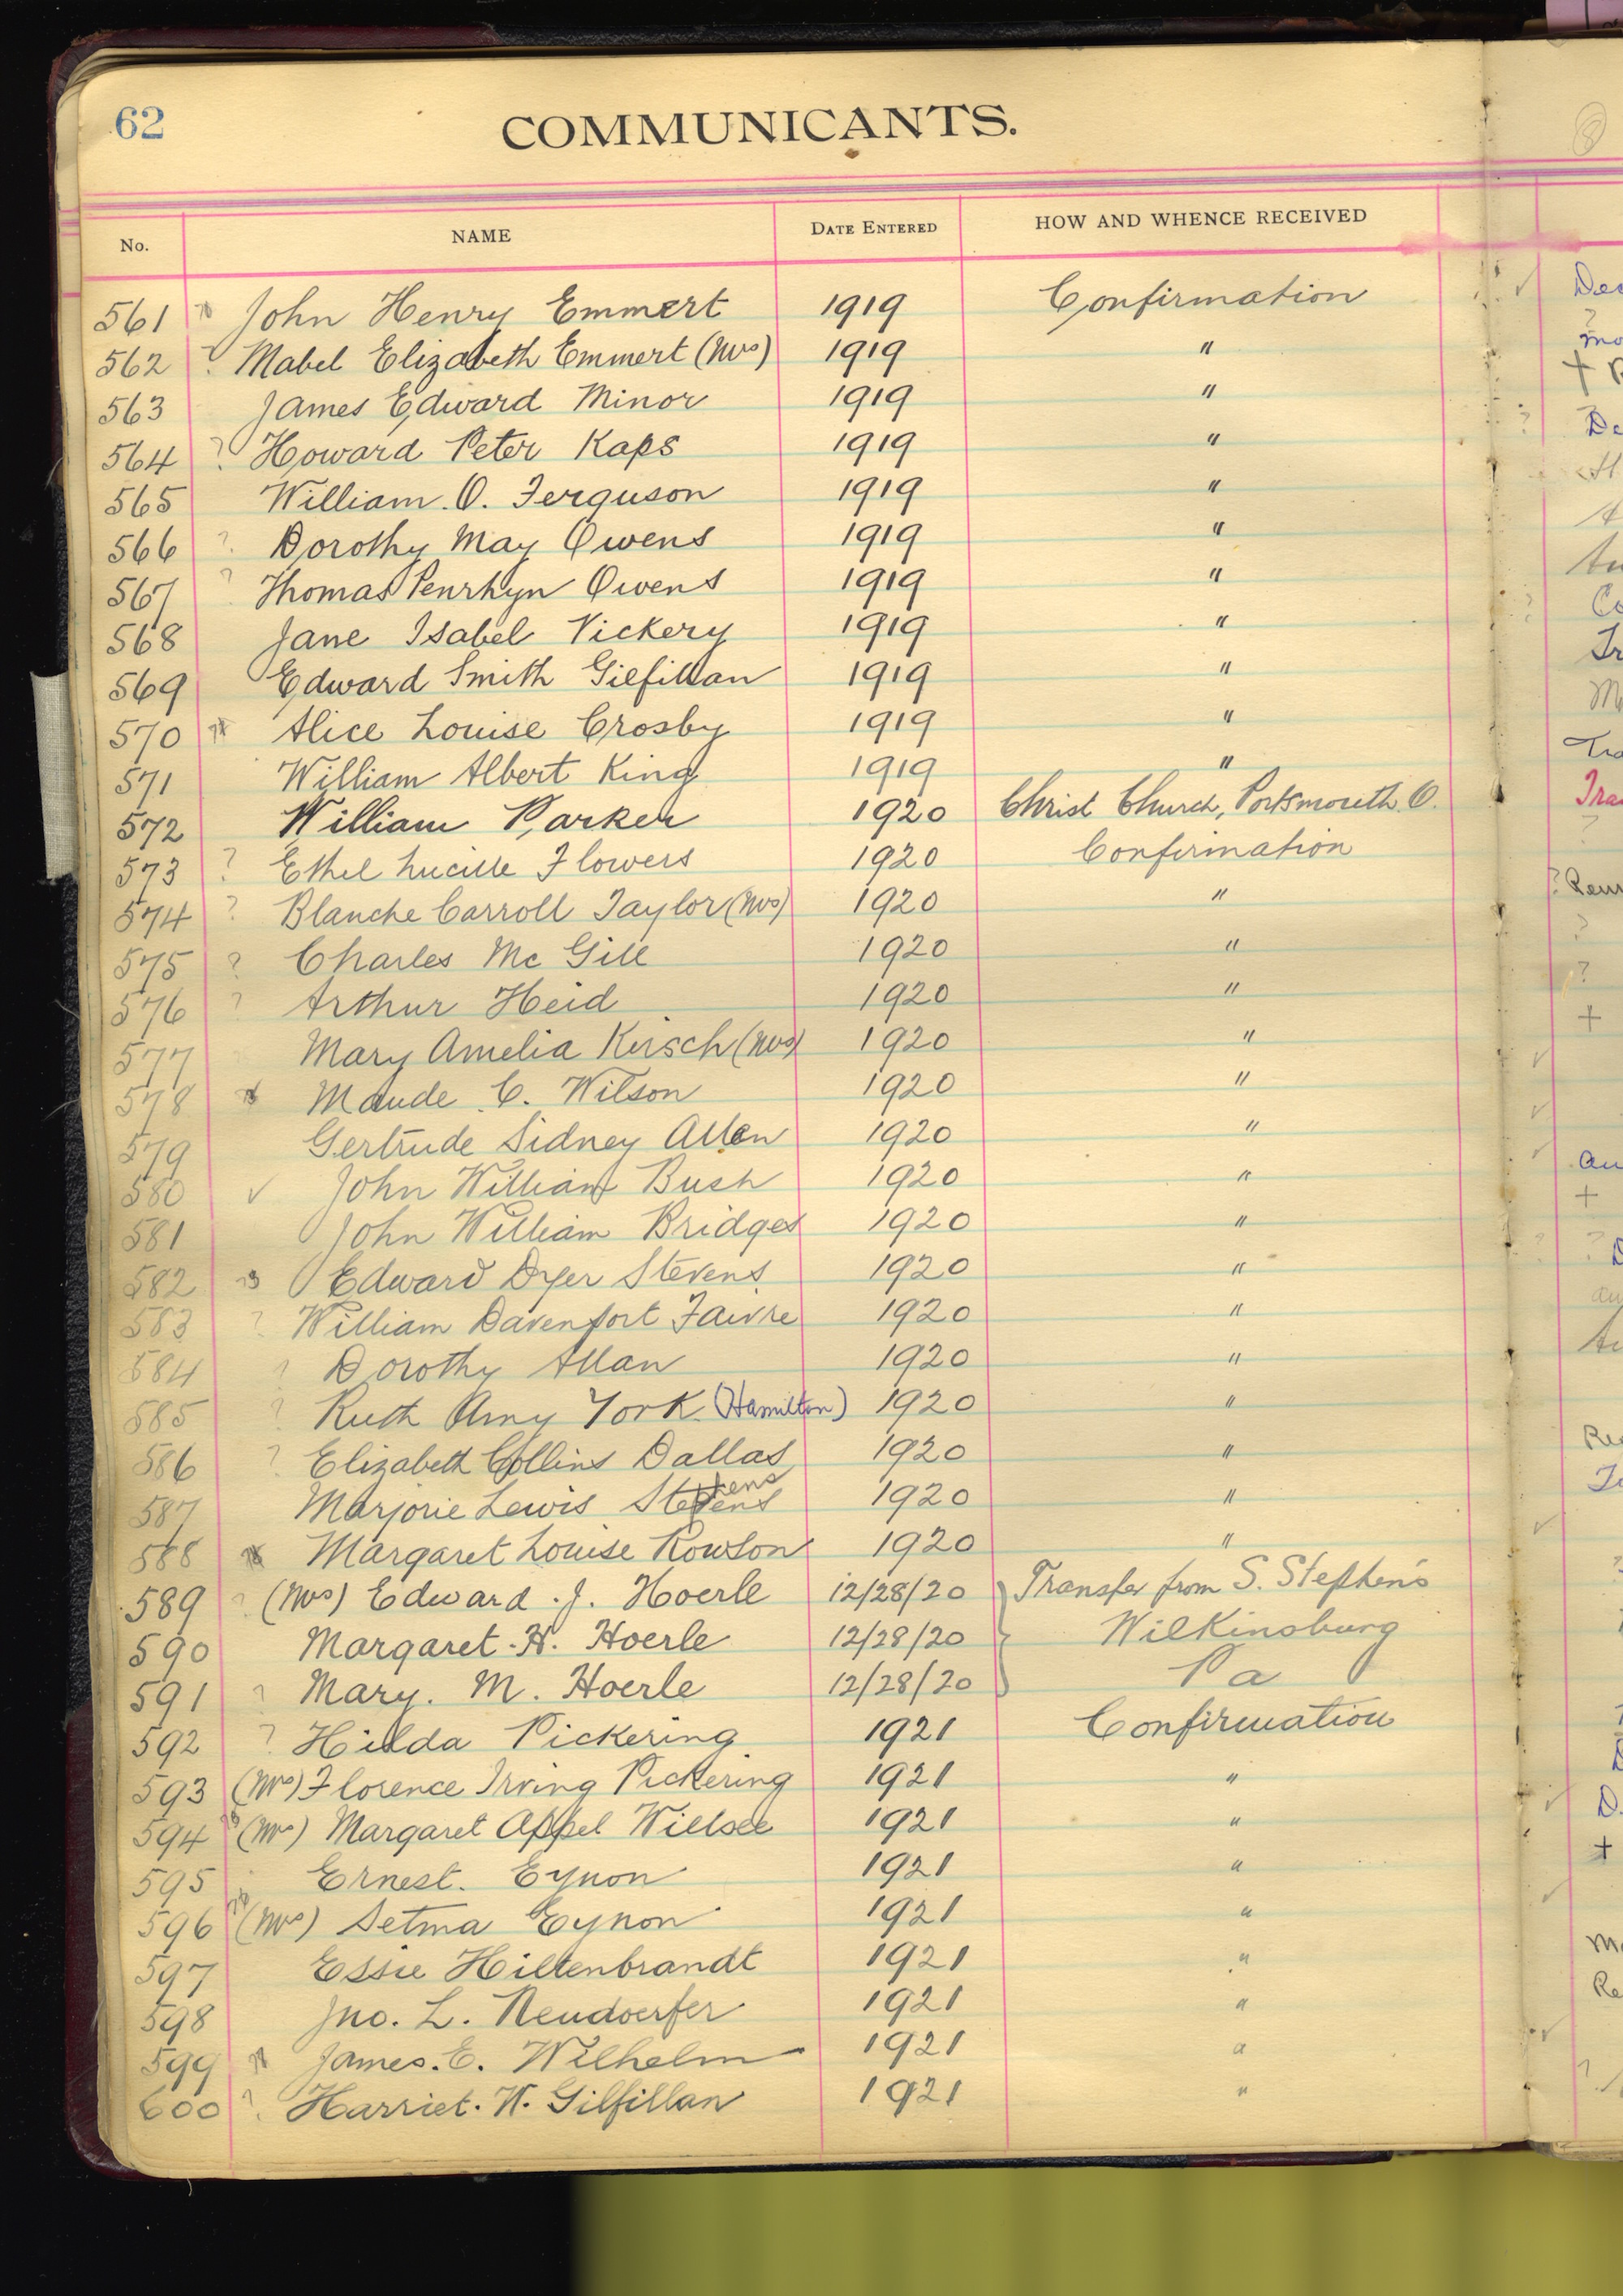 62
COMMUNICANTS.
No. NAME DATE ENTERED HOW AND WHENCE RECEIVED
561 John Henry Emmert 1919 Confirmation
562 ? Mabel Elizabeth Emmert (Mrs) 1919 "
563 James Edward Minor 1919 "
564 ? Howard Peter Kaps 1919 "
565 William. O. Ferguson 1919 "
566 ? Dorothy May Owens 1919 "
567 ? Thomas Penrhyn Owens 1919 "
568 Jane Isabel Vickery 1919 "
569 Edward Smith Gilfillan 1919 "
570 Alice Louise Crosby 1919 "
571 William Albert King 1919 "
572 William Parker 1920 Christ Church, Portsmouth O.
573 ? Ethel Lucille Flowers 1920 Confirmation
574 ? Blanche Carroll Taylor (Mrs) 1920 "
575 ? Charles Mc Gill 1920 "
576 ? Arthur Heid 1920 "
577 Mary Amelia Kirsch (Mrs) 1920 "
578 Maude C. Wilson 1920 "
579 Gertrude Sidney Allen 1920 "
580 ✓ John William Bush 1920 "
581 John William Bridges 1920 "
582 Edward Dyer Stevens 1920 "
583 ? William Davenport Faivre 1920 "
584 ? Dorothy Allan 1920 "
585 ? Ruth Amy York (Hamilton) 1920 "
586 ? Elizabeth Collins Dallas 1920 "
587 Marjorie Lewis Stephens 1920 "
588 Margaret Louise Rowson 1920 "
589 ? (Mrs) Edward. J. Hoerle 12/28/20 Transfer from S. Stephen's
590 Margaret. H. Hoerle 12/28/20 Wilkinsburg
591 ? Mary. M. Hoerle 12/28/20 Pa
592 ? Hilda Pickering 1921 Confirmation
593 (Mrs) Florence Irving Pickering 1921 "
594 (Mrs) Margaret Appel 1921 "
595 Ernest. Eynon 1921 "
596 (Mrs) Selma Eynon 1921 "
597 Essie Hiltenbrandt 1921 "
598 Jno. L. Neudoerfer 1921 "
599 James. E. Wilhelm 1921 "
600 ? Harriet. W. Gilfillan 1921 "